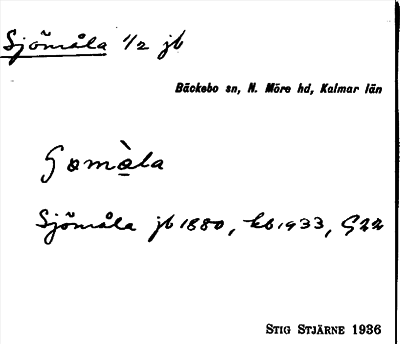 Sjömåla 1/2 jb
Bäckebo sn, N. Möre hd, Kalmar län
Sjömåla jb 1880, kb 1933, G22
STIG STJÄRNE 1936